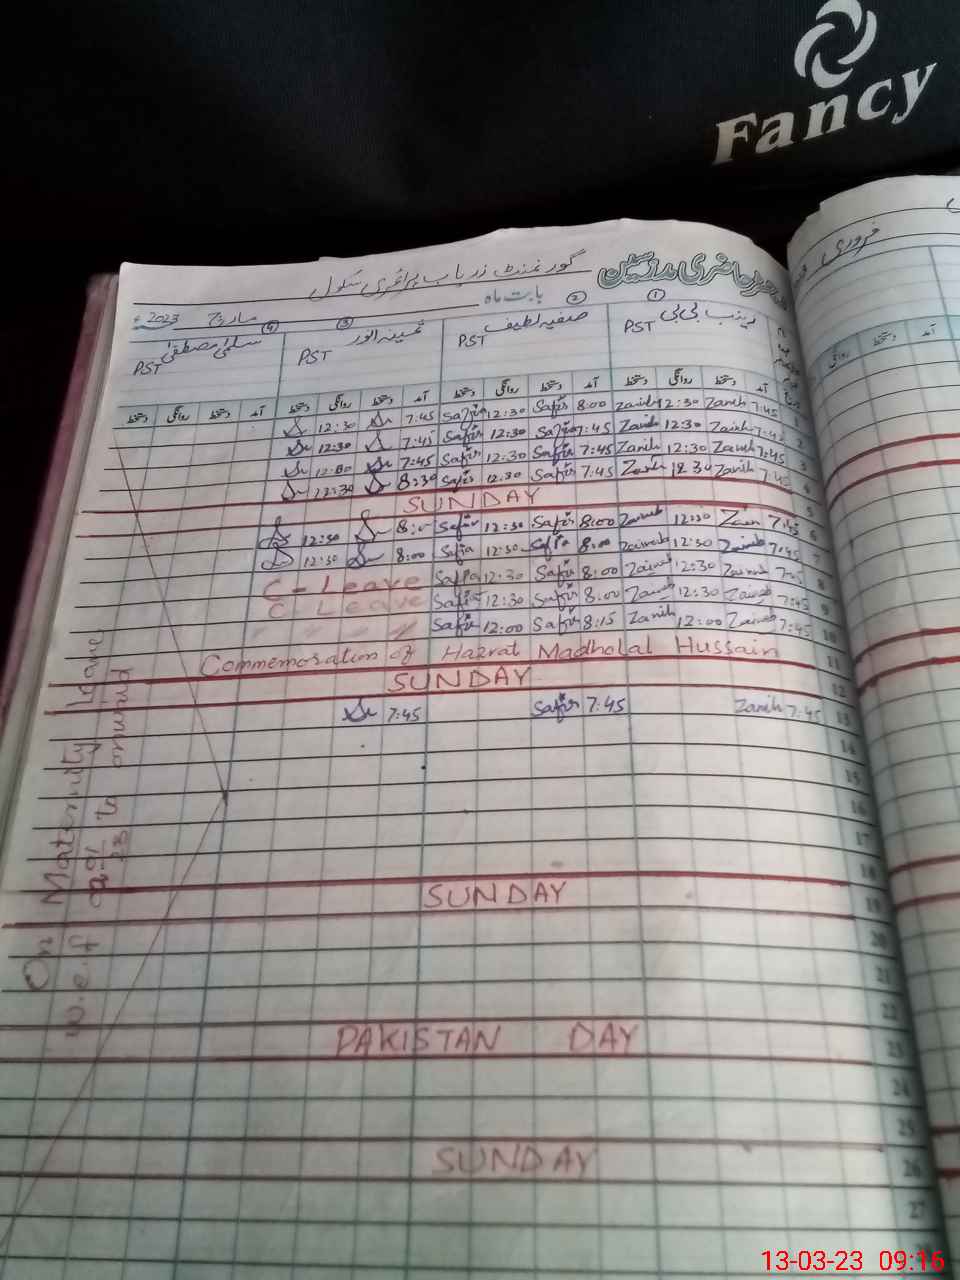 Fancy
گورنمنٹ زرباب پرائمری سکول
بابت ماہ
مارچ 2023ء
فروری
① زینب بی بی PST
② صفیہ لطیف PST
③ ثمینہ انور PST
④ سلمیٰ مصطفیٰ PST
آمد دستخط روانگی دستخط آمد دستخط روانگی دستخط آمد دستخط روانگی دستخط آمد دستخط روانگی دستخط
7:45 Zanib 12:30 Zanib 8:00 Safia 12:30 Safia 7:45 12:30
2 7:45 Zanib 12:30 Zanib 7:45 Safia 12:30 Safia 7:45 12:30
3 7:45 Zanib 12:30 Zanib 7:45 Safia 12:30 Safia 7:45 12:00
4 7:45 Zanib 12:30 Zanib 7:45 Safia 12:30 Safia 8:30 12:30
5 SUNDAY
6 7:45 Zain 12:30 Zainab 8:00 Safia 12:30 Safia 12:30
7 7:45 Zainab 12:30 Zainab 8:00 Safia 12:30 Safia 8:00 12:30
8 7:45 Zainab 12:30 Zainab 8:00 Safia 12:30 Safia C-Leave
9 7:45 Zainab 12:30 Zainab 8:00 Safia 12:30 Safia C-Leave
10 7:45 Zainab 12:00 Zanib 8:15 Safia 12:00 Safia
11 Commemoration of Hazrat Madholal Hussain
12 SUNDAY
13 7:45 Zanib 7:45 Safia 7:45
14
15
16
17
18
19 SUNDAY
20
21
22
23 PAKISTAN DAY
24
25
26 SUNDAY
27
On Maternity Leave
w.e.f to onward
13-03-23 09:16